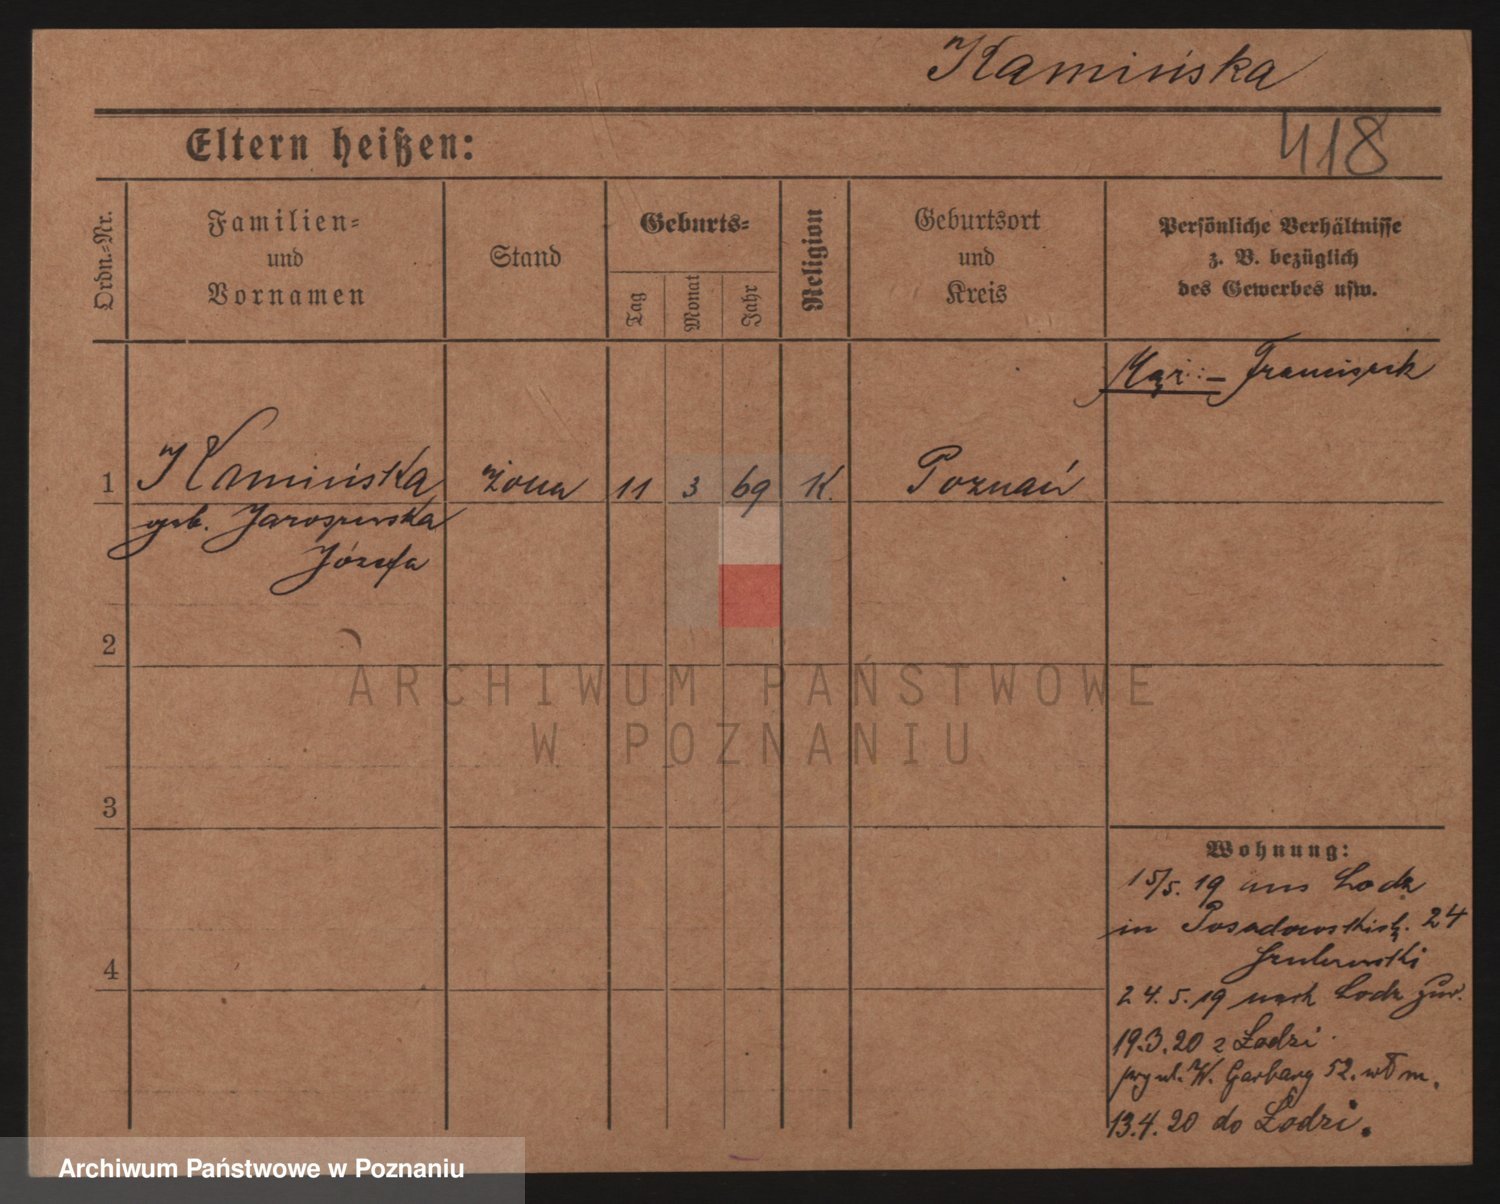 Kamińska
418
Eltern heißen:
Ordn.-Nr.
Familien-
und
Vornamen
Stand
Geburts-
Tag
Monat
Jahr
Religion
Geburtsort
und
Kreis
Persönliche Verhältnisse
z. B. bezüglich
des Gewerbes usw.
Mąż:- Franciszek
1 Kamińska żona 11 3 69 K. Poznań
geb. Jaroszewska
Józefa
2
3
4
Wohnung:
15/5. 19 aus Lodz
in Posadowskistr. 24
24. 5. 19 nach Lodz zur.
19.3.20 z Łodzi
przy ul. W. Garbary 52. wł m.
13.4.20 do Łodzi.
ARCHIWUM PAŃSTWOWE
W POZNANIU
Archiwum Państwowe w Poznaniu